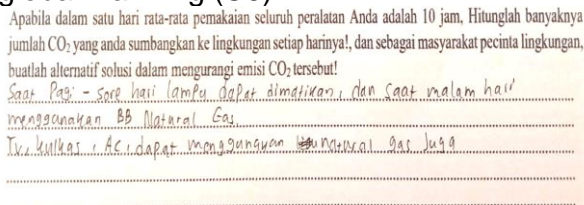 Apabila dalam satu hari rata-rata pemakaian seluruh peralatan Anda adalah 10 jam, Hitunglah banyaknya
jumlah CO₂ yang anda sumbangkan ke lingkungan setiap harinya!, dan sebagai masyarakat pecinta lingkungan,
buatlah alternatif solusi dalam mengurangi emisi CO₂ tersebut!
Saat Pagi - Sore hari lampu dapat dimatikan, dan Saat malam hari
menggunakan BB Natural Gas
Tv, kulkas, AC, dapat menggunakan natural gas Juga